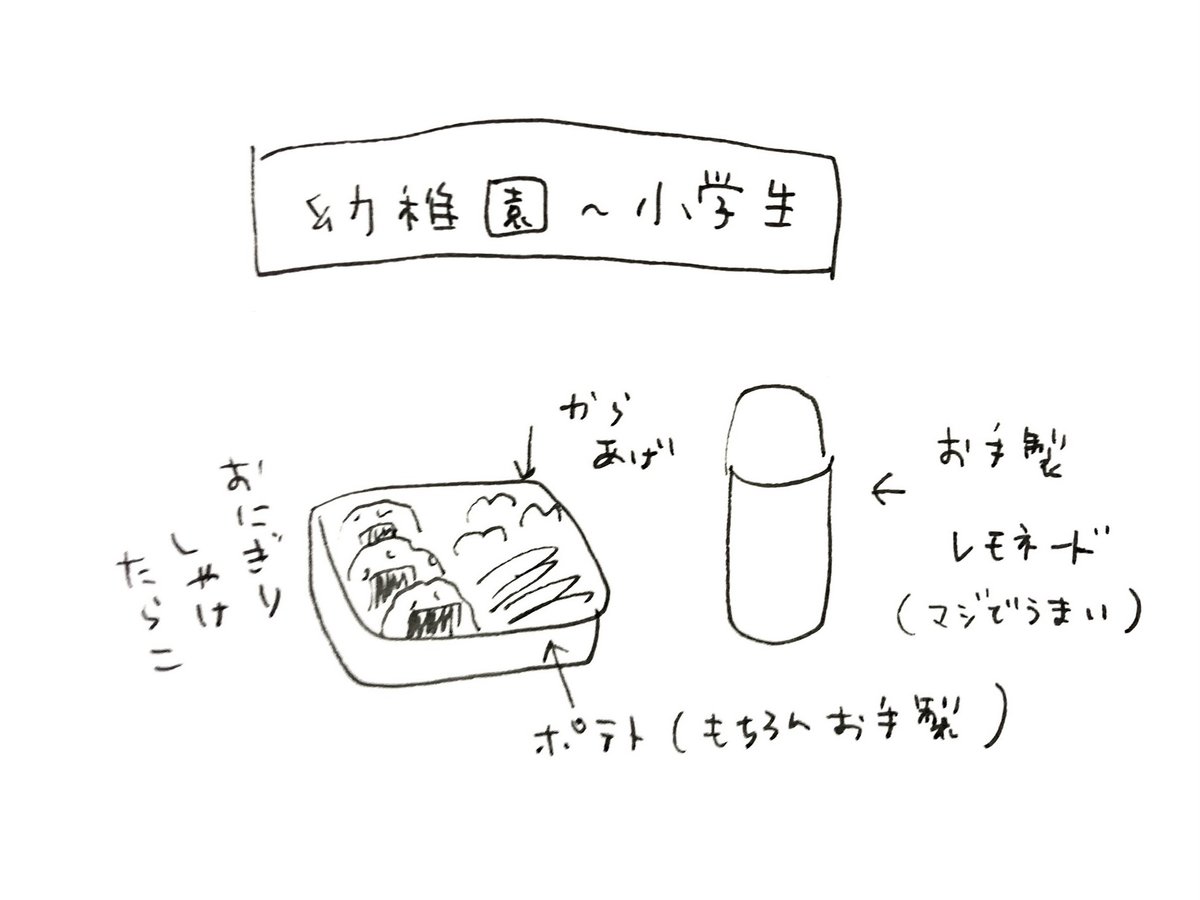 幼稚園~小学生
から
あげ
おにぎり
しゃけ
たらこ
お手製
レモネード
(マジでうまい)
ポテト(もちろんお手製)